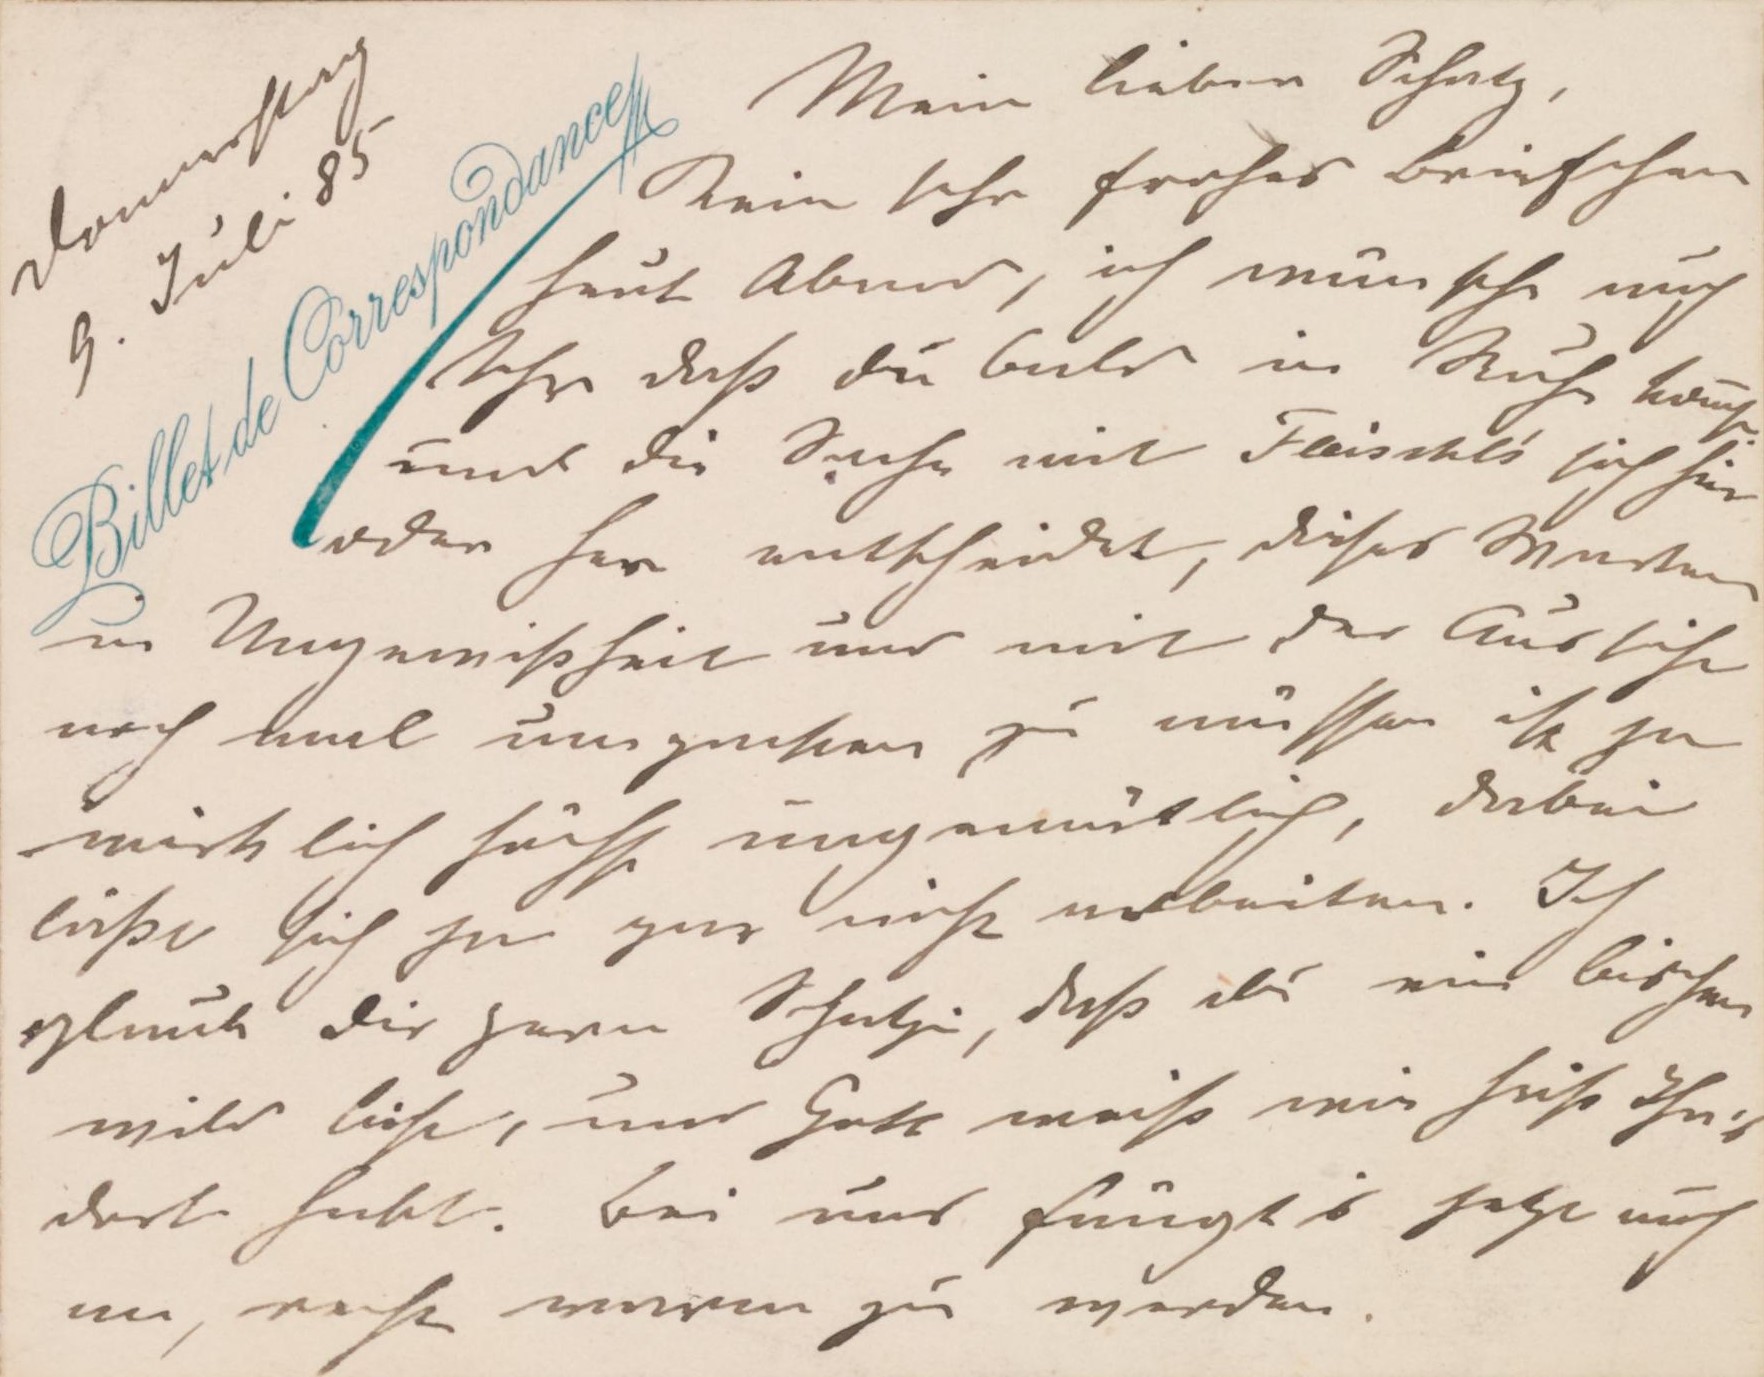 Donnerstag
9. Juli 85
Billet de Correspondance
Mein lieber Schatz,
Kein sehr frohes Briefchen
heut Abend, ich wünsche nur
sehr daß du bald in Ruhe komst
und die Sache mit Fleischl's sich hin
oder her entscheidet, dieses Warten
in Ungewißheit und mit der Aussicht
noch mal umzuziehen zu müssen ist ja
wirklich höchst ungemütlich, dabei
ließe sich ja gar nicht arbeiten. Ich
glaub dir gern Schatzi, daß du ein bischen
wild bist, und Gott weiß wie heiß Ihr's
dort habt. Bei uns fängt's jetzt auch
an, recht warm zu werden.